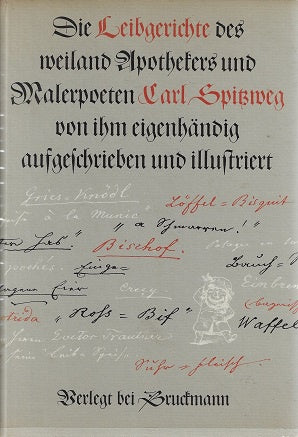 Die Leibgerichte des
weiland Apothekers und
Malerpoeten Carl Spitzweg
von ihm eigenhändig
aufgeschrieben und illustriert
Gries=Knödl
Löffel=Bisquit
à la Munic
"a Schmarren!"
Has."
Bischof.
Einge=
Bauch=
Eier
Crecy.
"Ross=Bif"
Waffel
Herrn Doctor Trautner
seine Leibe Speise
Suhr=fleisch.
Verlegt bei Bruckmann